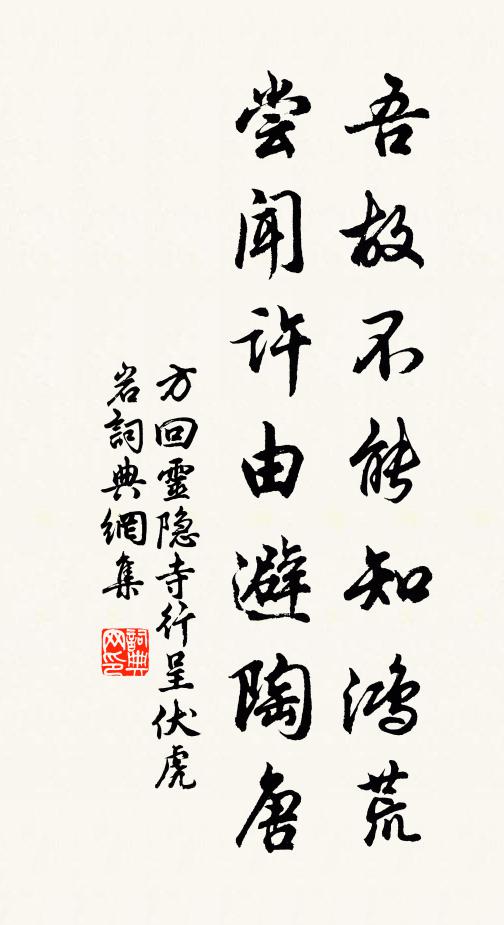 吾故不能知鸿荒
尝闻许由避陶唐
方回靈隐寺行呈伏虎
岩詞典網集
詞典网印